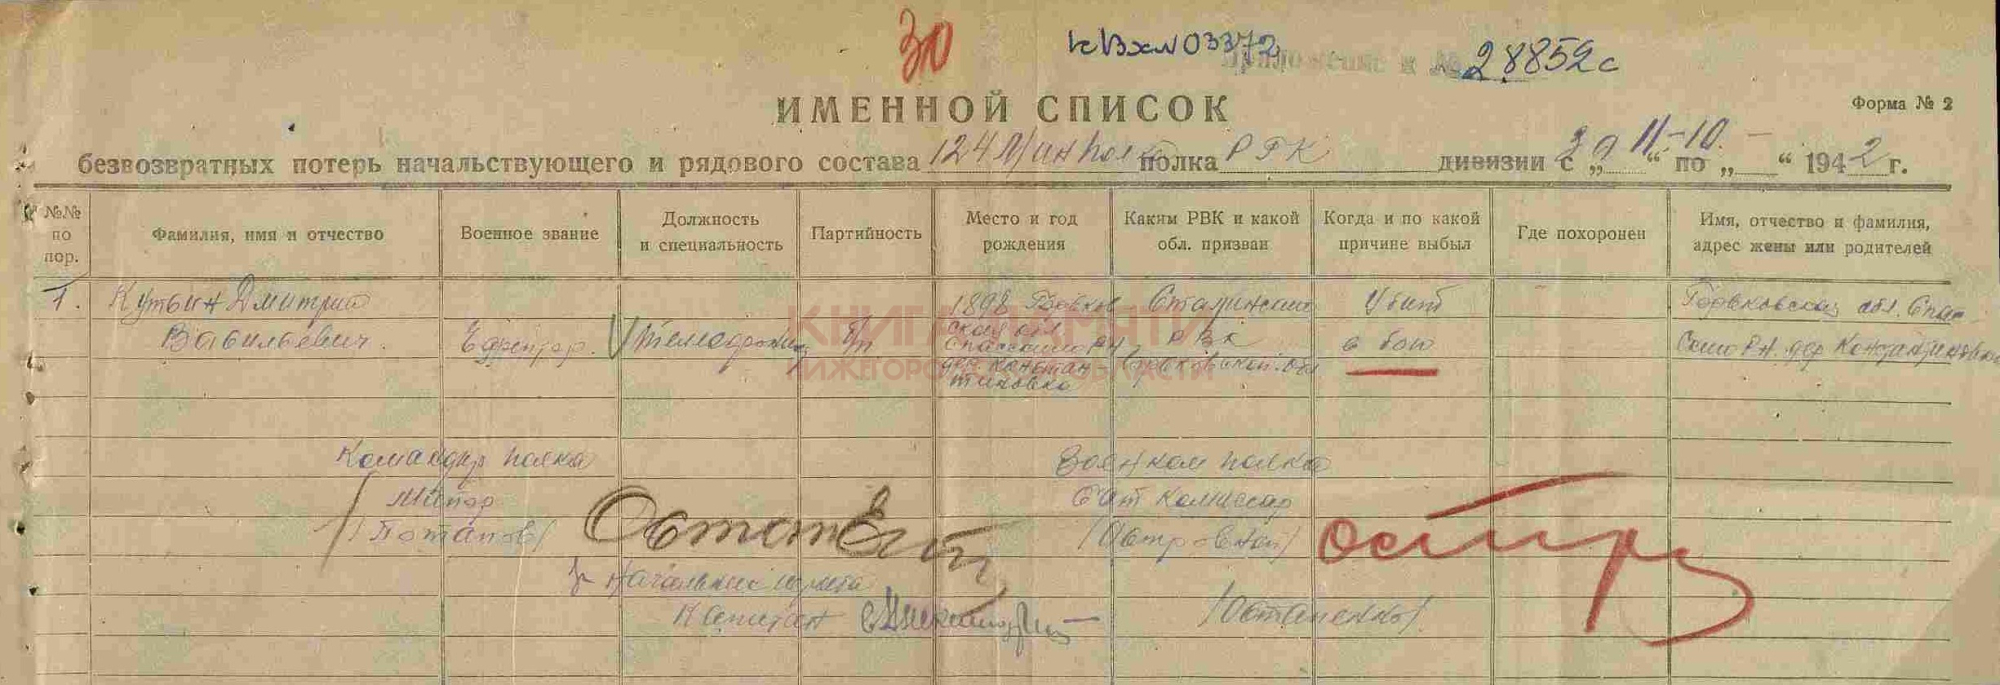 30
к Вх № 03372
Приложение к № 28852с
ИМЕННОЙ СПИСОК
Форма № 2
безвозвратных потерь начальствующего и рядового состава 124 Мин полка полка РГК дивизии с „ “ по „ “ 1942 г.
11-10
№№ по пор.
Фамилия, имя и отчество
Военное звание
Должность и специальность
Партийность
Место и год рождения
Каким РВК и какой обл. призван
Когда и по какой причине выбыл
Где похоронен
Имя, отчество и фамилия, адрес жены или родителей
1. Кутьин Дмитрий 1898 Горьков Сталинский Убит Горьковская обл. Спас
Васильевич. Ефрейтор. Телефонист б/п ская обл. РВК в бою ском РН. дер Константиновка
Спасский РН
дер Констан Горьковской. обл
тиновка
КНИГА ПАМЯТИ
НИЖЕГОРОДСКОЙ ОБЛАСТИ
Командир полка Военком полка
Майор Бат Комиссар
/Потапов/ /Островский/
Начальник штаба
Капитан /Остапенко/